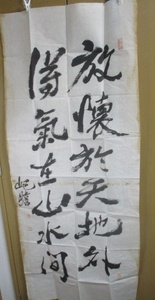 放懷於天地外
得氣在山水間